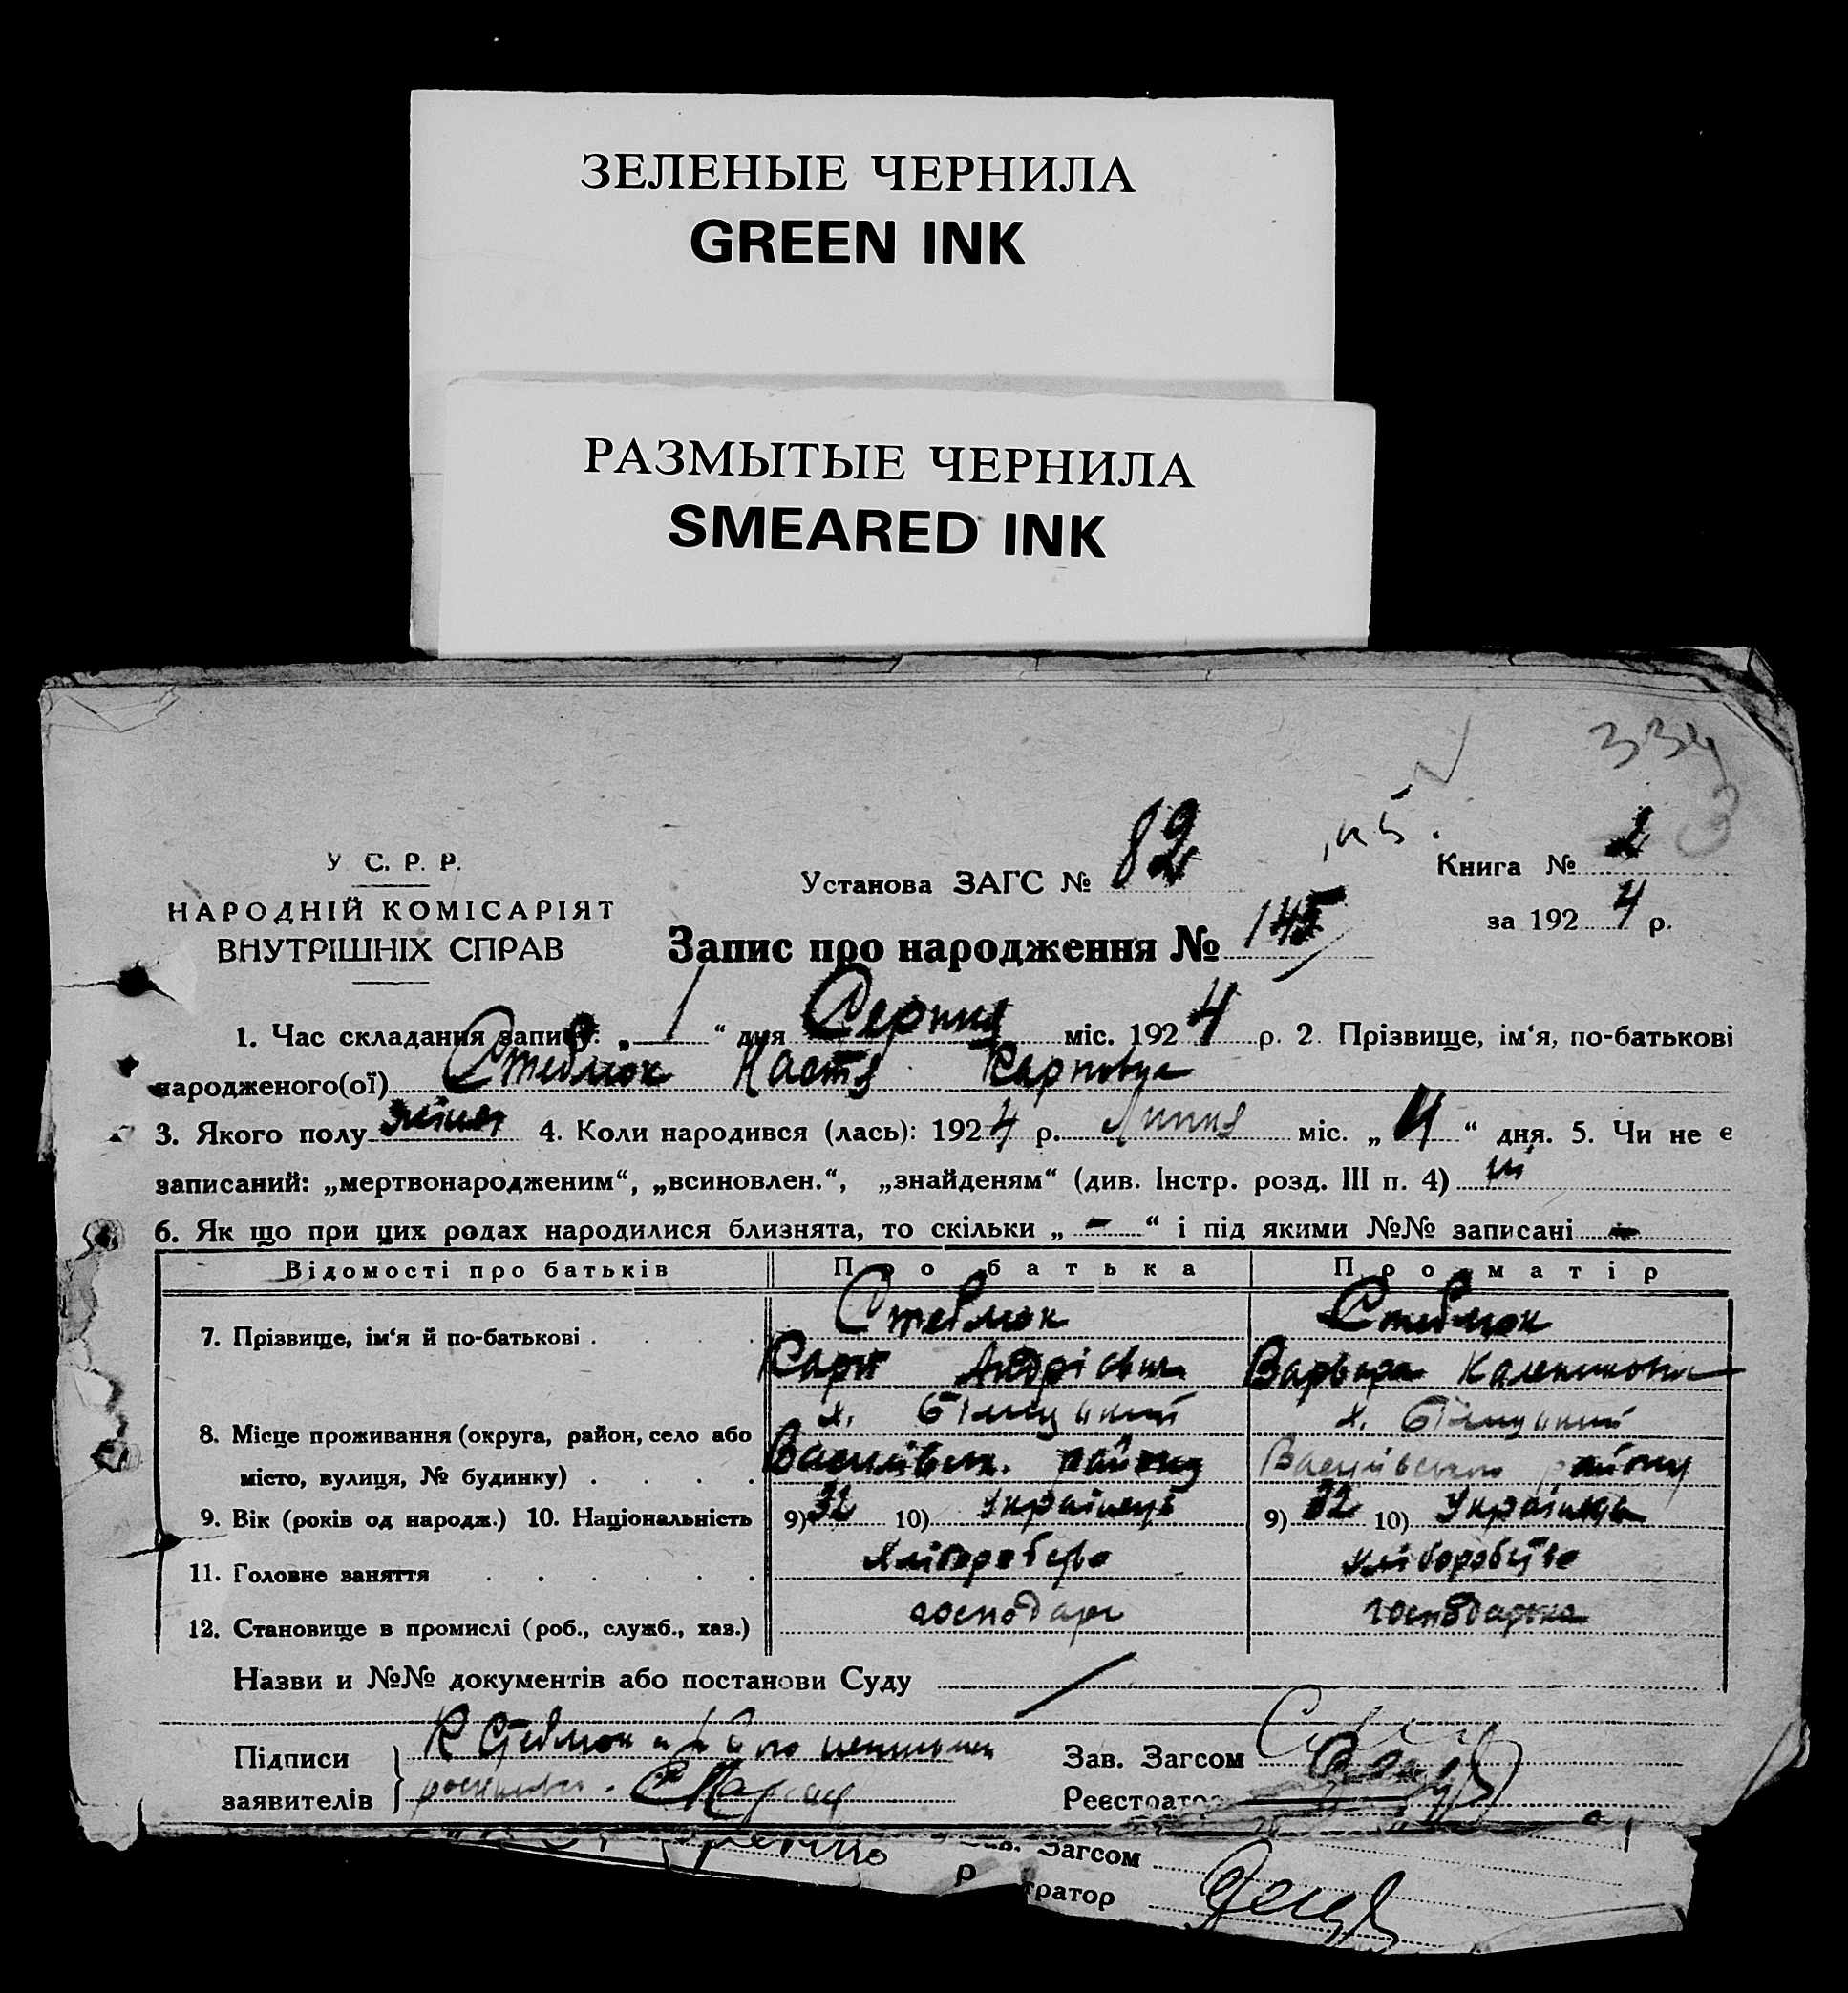 ЗЕЛЕНЫЕ ЧЕРНИЛА
GREEN INK
РАЗМЫТЫЕ ЧЕРНИЛА
SMEARED INK
334
3
У С. Р. Р.
НАРОДНІЙ КОМІСАРІЯТ
ВНУТРІШНІХ СПРАВ
Установа ЗАГС № 82
Книга № 2
за 1924 р.
Запис про народження № 145
1. Час складання запису: „ 1 “ дня Серпня міс. 1924 р. 2. Прізвище, ім‘я, по-батькові
народженого(ої) Стеблюк Настя Карповна
3. Якого полу 4. Коли народився (лась): 1924 р. Липня міс. „ 4 “ дня. 5. Чи не є
записаний: „мертвонародженим“, „всиновлен.“, „знайденям“ (див. Інстр. розд. III п. 4) ні
6. Як що при цих родах народилися близнята, то скільки „ - “ і під якими №№ записані -
Відомості про батьків Про батька Про матір
7. Прізвище, ім‘я й по-батькові . Стеблюк Стеблюк
Карп Андрієвич Варвара Калениковна
8. Місце проживання (округа, район, село або х. х.
місто, вулиця, № будинку) . Василівськ. району Василівського району
9. Вік (років од народж.) 10. Національність 9) 32 10) Українець 9) 32 10) Українка
11. Головне заняття Хліборобство хліборобство
12. Становище в промислі (роб., служб., хаз.) господарь господарка
Назви и №№ документів або постанови Суду
Підписи К Стеблюк Зав. Загсом
заявителів Реєстратор
Загсом
тратор